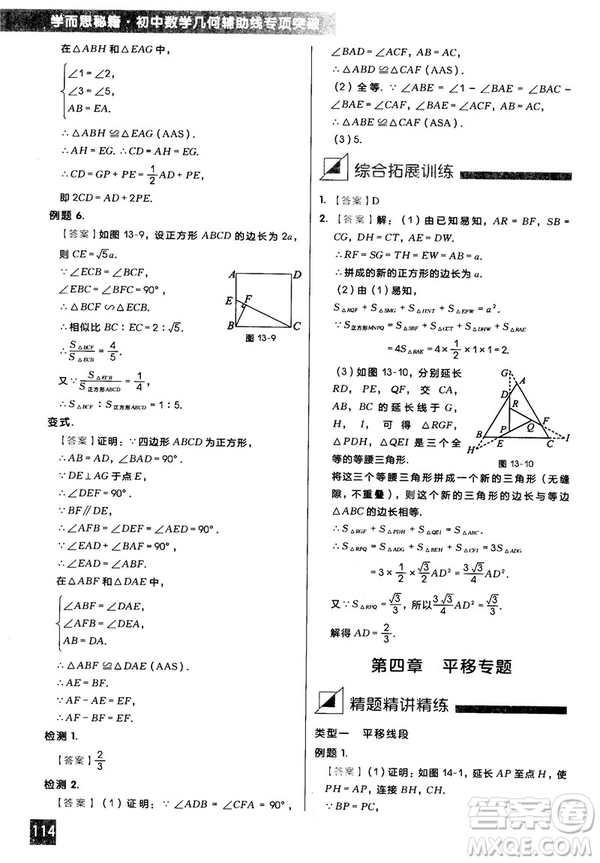 学而思秘籍·初中数学几何辅助线专项突破
在△ABH 和△EAG 中,
∠1=∠2,
∠3=∠5,
AB=EA.
∴△ABH≌△EAG (AAS).
∴AH=EG. ∴PH=EG.
∴CD=GP+PE=1/2 AD+PE,
即 2CD=AD+2PE.
例题 6.
【答案】如图 13-9, 设正方形 ABCD 的边长为 2a,
则 CE=√5a.
∵∠ECB=∠BCF,
∠EBC=∠BFC=90°,
∴△BCF∽△ECB.
∴相似比 BC:EC=2:√5.
∴S△BCF/S△ECB=4/5.
又∵S△ECB/S正方形ABCD=1/4,
∴S△BCF:S正方形ABCD=1:5.
A
D
E
F
B
C
图 13-9
变式.
【答案】证明: ∵四边形 ABCD 为正方形,
∴AD=AB, ∠DAB=90°.
∵DE⊥AG 于点 E,
∴∠DEF=90°.
∵BF∥DE,
∴∠AFB=∠DEF=90°.
∵∠EAD+∠BAF=90°,
∠EAD+∠ADE=90°,
∴∠BAF=∠ADE.
在△ABF 和△DAE 中,
∠ABF=∠DAE,
∠AFB=∠DEA,
AB=DA.
∴△ABF≌△DAE (AAS).
∴AE=BF.
∵AF-AE=EF,
∴AF-BF=EF.
检测 1.
【答案】2/3
检测 2.
【答案】(1) 证明: ∵∠ADB=∠CFA=90°,
114
∠BAD=∠ACF, AB=AC,
∴△BAD≌△ACF (AAS).
(2) 全等. ∵∠BAE=∠1-∠ABE=∠BAC-∠ABE=∠CAF,
∴△ABE≌△CAF (AAS).
(3) 5.
综合拓展训练
1. 【答案】D
2. 【答案】解: (1) 由已知易知, AR=BF, SB=CG, TC=DH, WD=AE,
∴RF=SG=TH=EW=AB=a.
∴拼成的新的正方形的边长为 a.
(2) 由 (1) 易知,
S△RGF+S△SMG+S△HNT+S△EPW=a².
∴S正方形MNPQ=S△RAE+S△DWH+S△TCG+S△SBF
=4S△RAE=4×1/2×1²=2.
(3) 如图 13-10, 分别延长 RD, PE, QF, 交 CA, AB, BC 的延长线于点 G, H, I, 可得 △RGF, △PDH, △QEI 是三个全等的等腰三角形.
G
A
D
R
F
Q
B
E
C
I
H
图 13-10
将这三个等腰三角形拼成一个新的三角形 (无缝隙, 不重叠), 则新的三角形的边长与等边△ABC 的边长相等.
∴S△RFG+S△RPQ+S△PDH+S△QEI
=S△RPQ+S△ADG+S△BEH+S△CFI
=3×1/2×√3/2=3√3/4.
又∵S△RPQ=√3/3, 所以√3/3=
解得 AD=2/3.
第四章 平移专题
精题精讲精练
类型一 平移线段
例题 1.
【答案】(1) 证明: 如图 14-1, 延长 AP 至点 H, 使得 PH=AP, 连接 BH, HC, PF.
∵BP=PC,